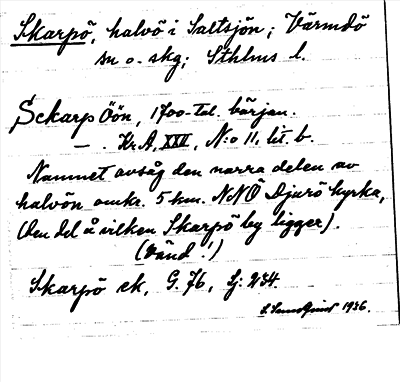 Skarpö, halvö i Saltsjön; Värmdö
sn o. skg; Sthlms l.
Sckarp Öön, 1700-tal. början.
— . Kr.A. XXII, N:o 11, lit. b.
Namnet avsåg den norra delen av
halvön omkr. 5 km. NNÖ Djurö kyrka,
(den del å vilken Skarpö by ligger).
(Vänd!)
Skarpö ek, G. 76, Lj: 234.
1936.